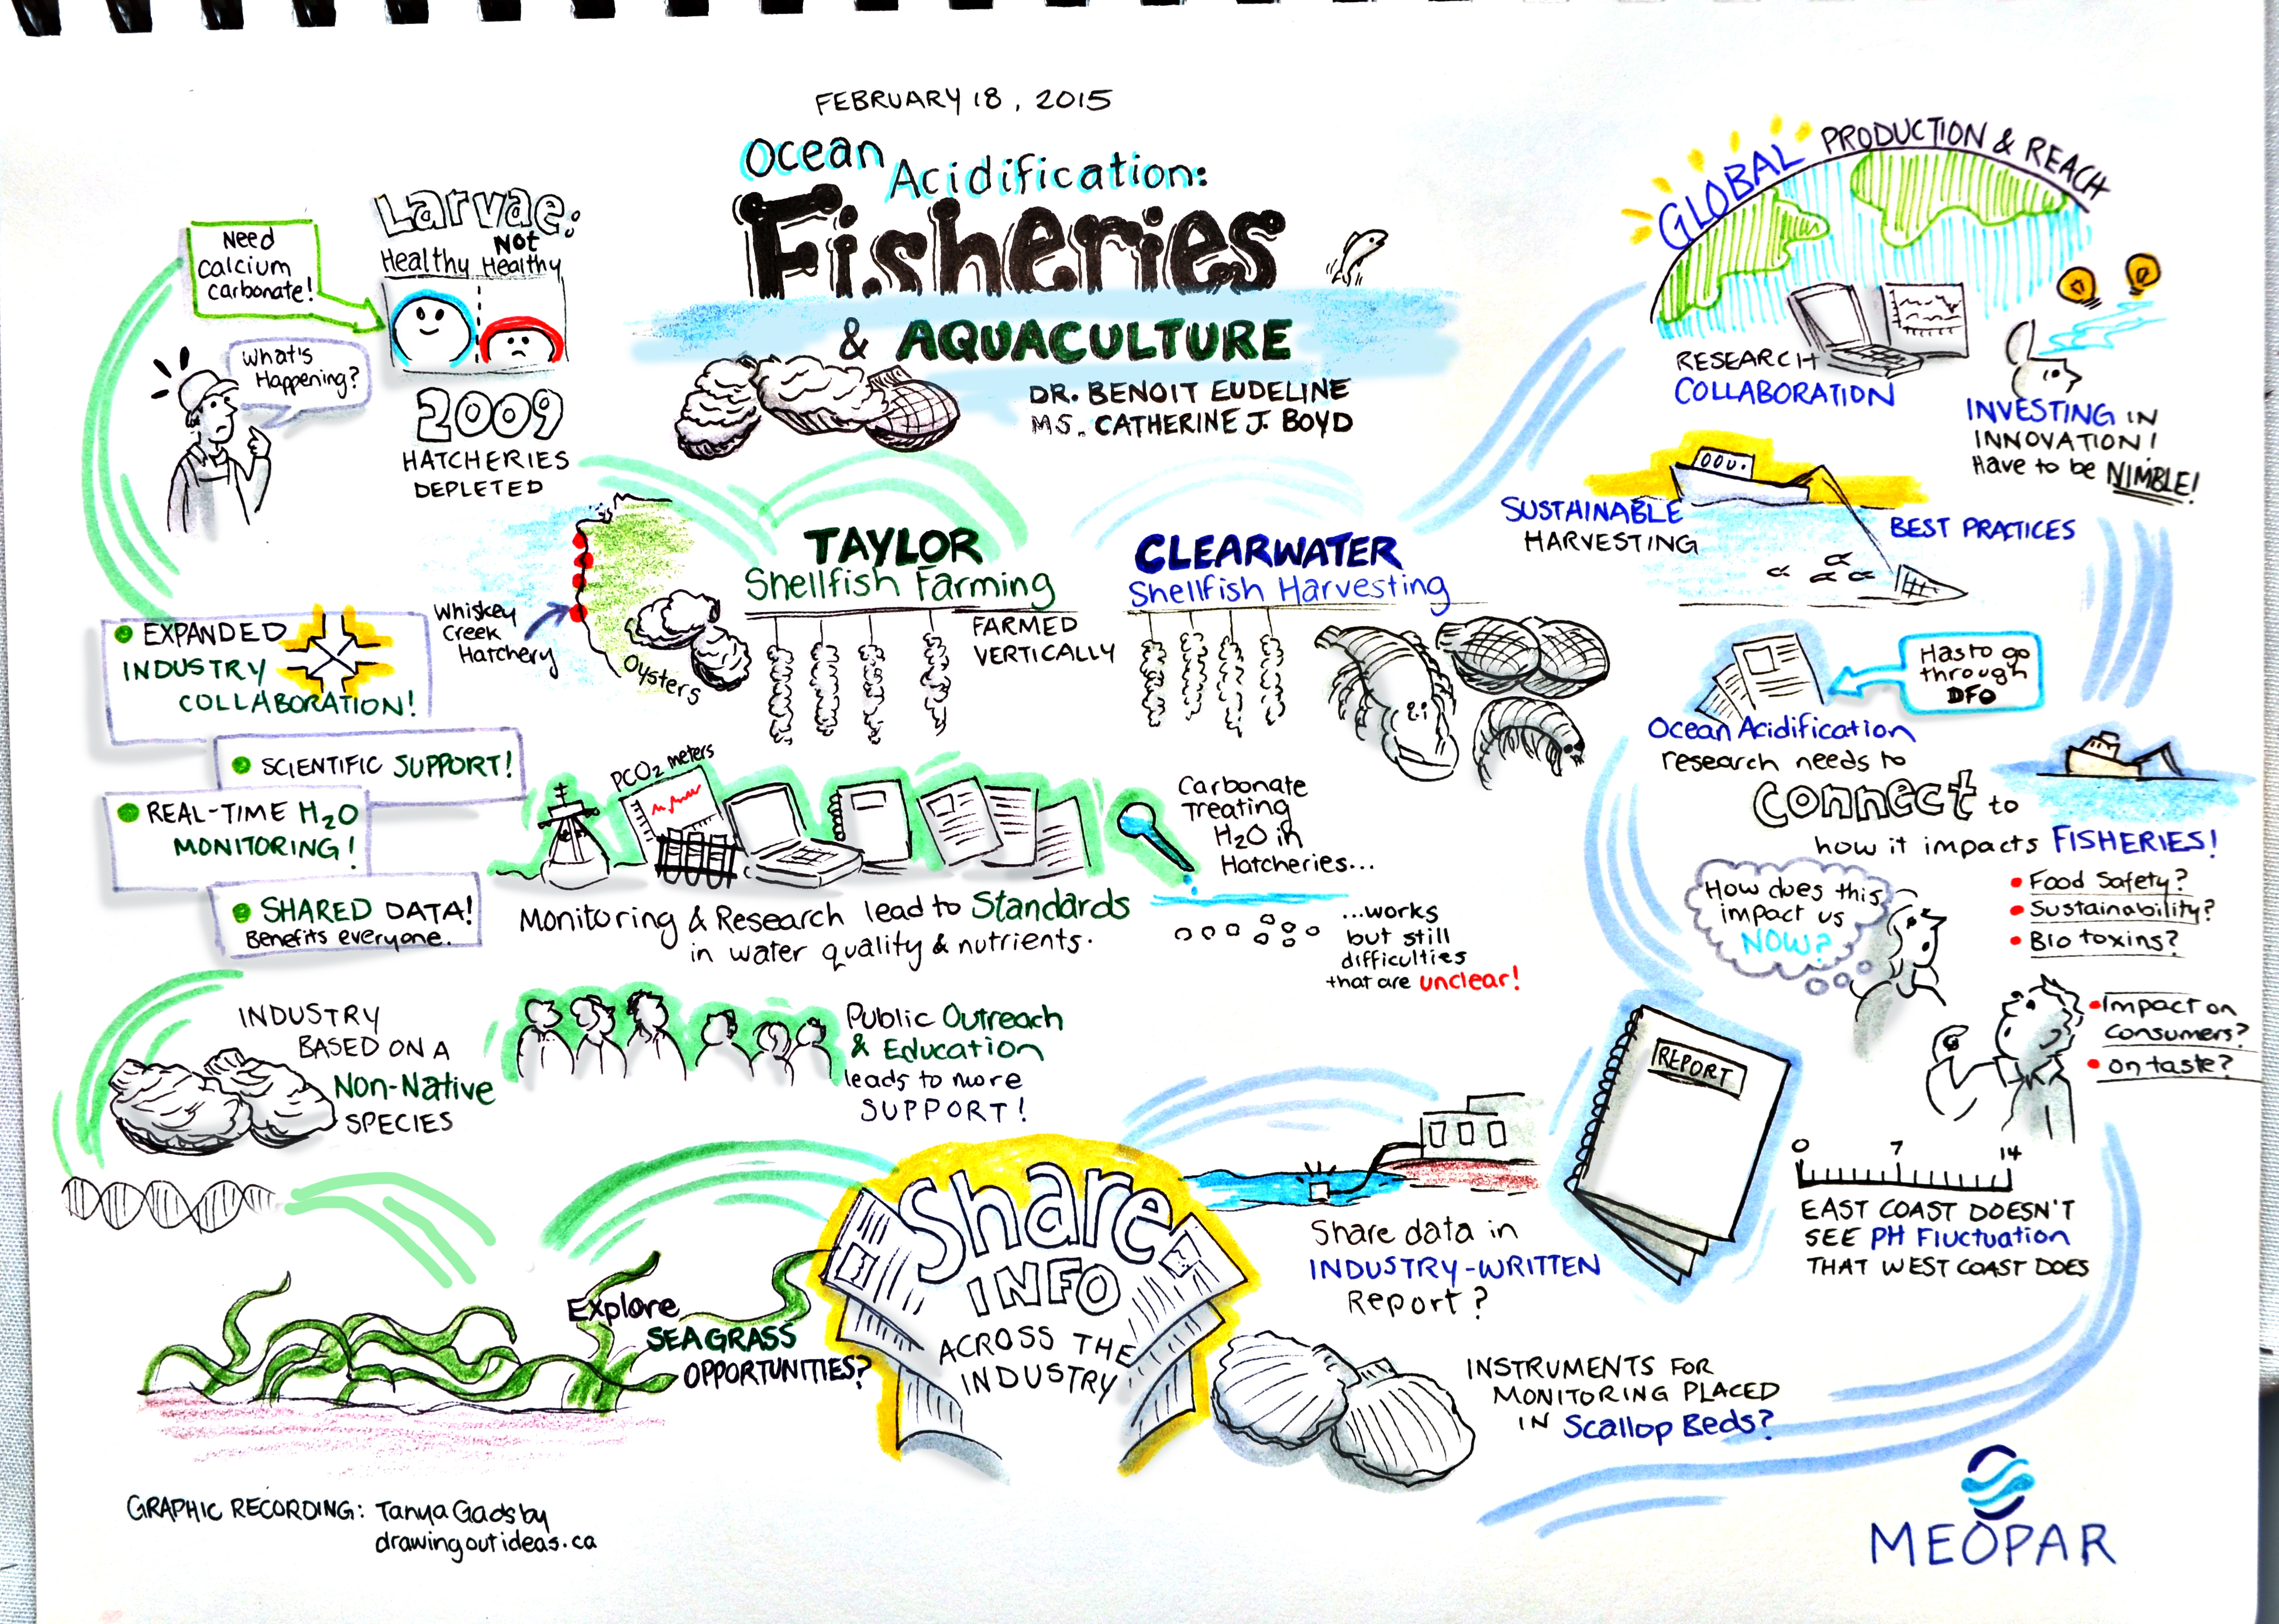 FEBRUARY 18, 2015
Ocean
Acidification:
Fisheries
& AQUACULTURE
DR. BENOIT EUDELINE
MS. CATHERINE J. BOYD
Need
calcium
carbonate!
Larvae:
Healthy
Not
Healthy
What's
Happening?
2009
HATCHERIES
DEPLETED
TAYLOR
Shellfish Farming
Whiskey
Creek
Hatchery
Oysters
FARMED
VERTICALLY
EXPANDED
INDUSTRY
COLLABORATION!
SCIENTIFIC SUPPORT!
REAL-TIME H2O
MONITORING!
SHARED DATA!
Benefits everyone.
PCO2 meters
Monitoring & Research lead to Standards
in water quality & nutrients.
Carbonate
Treating
H2O in
Hatcheries...
...works
but still
difficulties
that are unclear!
INDUSTRY
BASED ON A
Non-Native
SPECIES
Public Outreach
& Education
leads to more
SUPPORT!
Explore
SEAGRASS
OPPORTUNITIES?
Share
INFO
ACROSS THE
INDUSTRY
CLEARWATER
Shellfish Harvesting
GLOBAL PRODUCTION & REACH
RESEARCH
COLLABORATION
INVESTING IN
INNOVATION!
Have to be NIMBLE!
SUSTAINABLE
HARVESTING
BEST PRACTICES
Has to go
through
DFO
Ocean Acidification
research needs to
connect to
how it impacts FISHERIES!
How does this
impact us
NOW?
Food Safety?
Sustainability?
Bio toxins?
Impact on
consumers?
on taste?
REPORT
0 7 14
EAST COAST DOESN'T
SEE PH Fluctuation
THAT WEST COAST DOES
Share data in
INDUSTRY-WRITTEN
Report?
INSTRUMENTS FOR
MONITORING PLACED
IN Scallop Beds?
GRAPHIC RECORDING: Tanya Gadsby
drawingoutideas.ca
MEOPAR